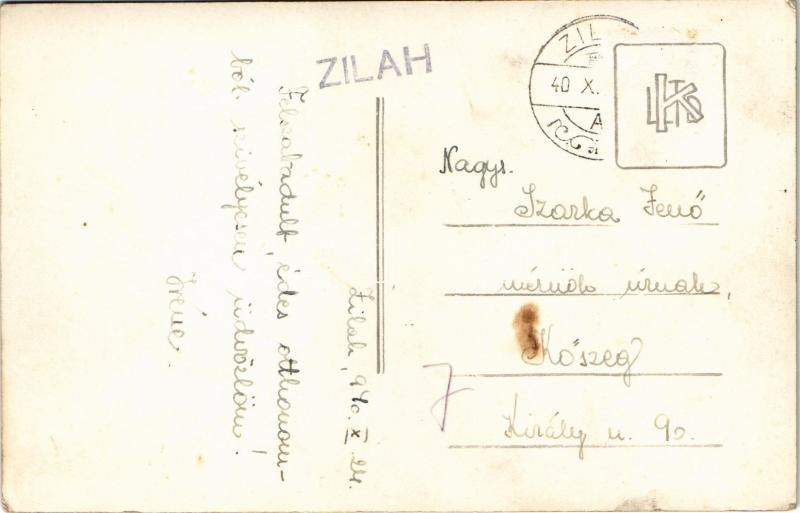 ZILAH
ZIL
40 X.
A
Zilah, 940. X. 24.
Felszabadult, édes otthonom-
ból szivélyesen üdvözlöm!
Iréne.
Nagys.
Szarka Jenő
mérnök úrnak,
Kőszeg
Király u. 90.
7